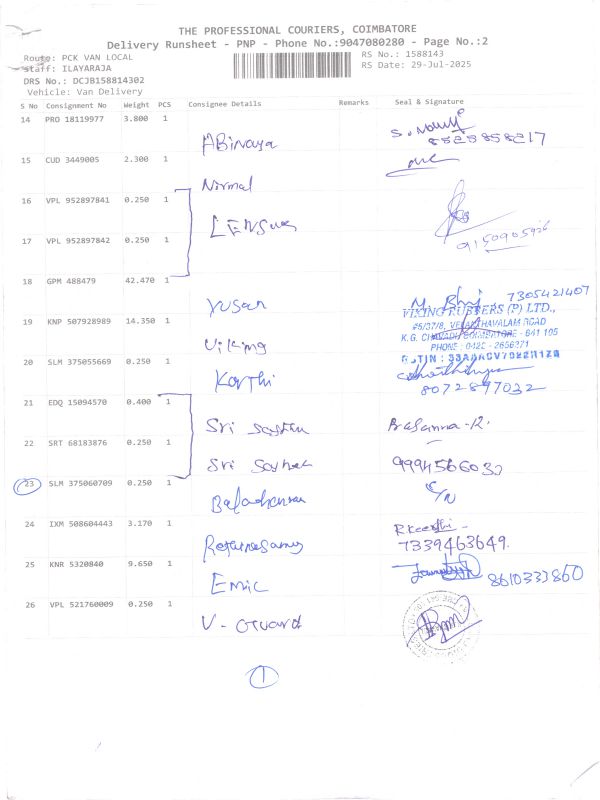 THE PROFESSIONAL COURIERS, COIMBATORE
Delivery Runsheet - PNP - Phone No.:9047080280 - Page No.:2
Route: PCK VAN LOCAL
Staff: ILAYARAJA
DRS No.: DCJB158814302
Vehicle: Van Delivery
RS No.: 1588143
RS Date: 29-Jul-2025
S No Consignment No Weight PCS Consignee Details Remarks Seal & Signature
14 PRO 18119977 3.800 1
ABinaya
8525858217
15 CUD 3449005 2.300 1
Nirmal
16 VPL 952897841 0.250 1
17 VPL 952897842 0.250 1
18 GPM 488479 42.470 1
7305421407
19 KNP 507928989 14.350 1
Viking
VIKING RUBBERS (P) LTD.,
COIMBATORE - 641 105
PHONE : 0422 - 2656371
20 SLM 375055669 0.250 1
Karthi
8072897032
21 EDQ 15094570 0.400 1
Sri
Prasanna.R.
22 SRT 68183876 0.250 1
Sri
23 SLM 375060709 0.250 1
24 IXM 508604443 3.170 1
R Keerthi
7339463649.
25 KNR 5320840 9.650 1
Emic
8610333860
26 VPL 521760009 0.250 1
V-Guard
1